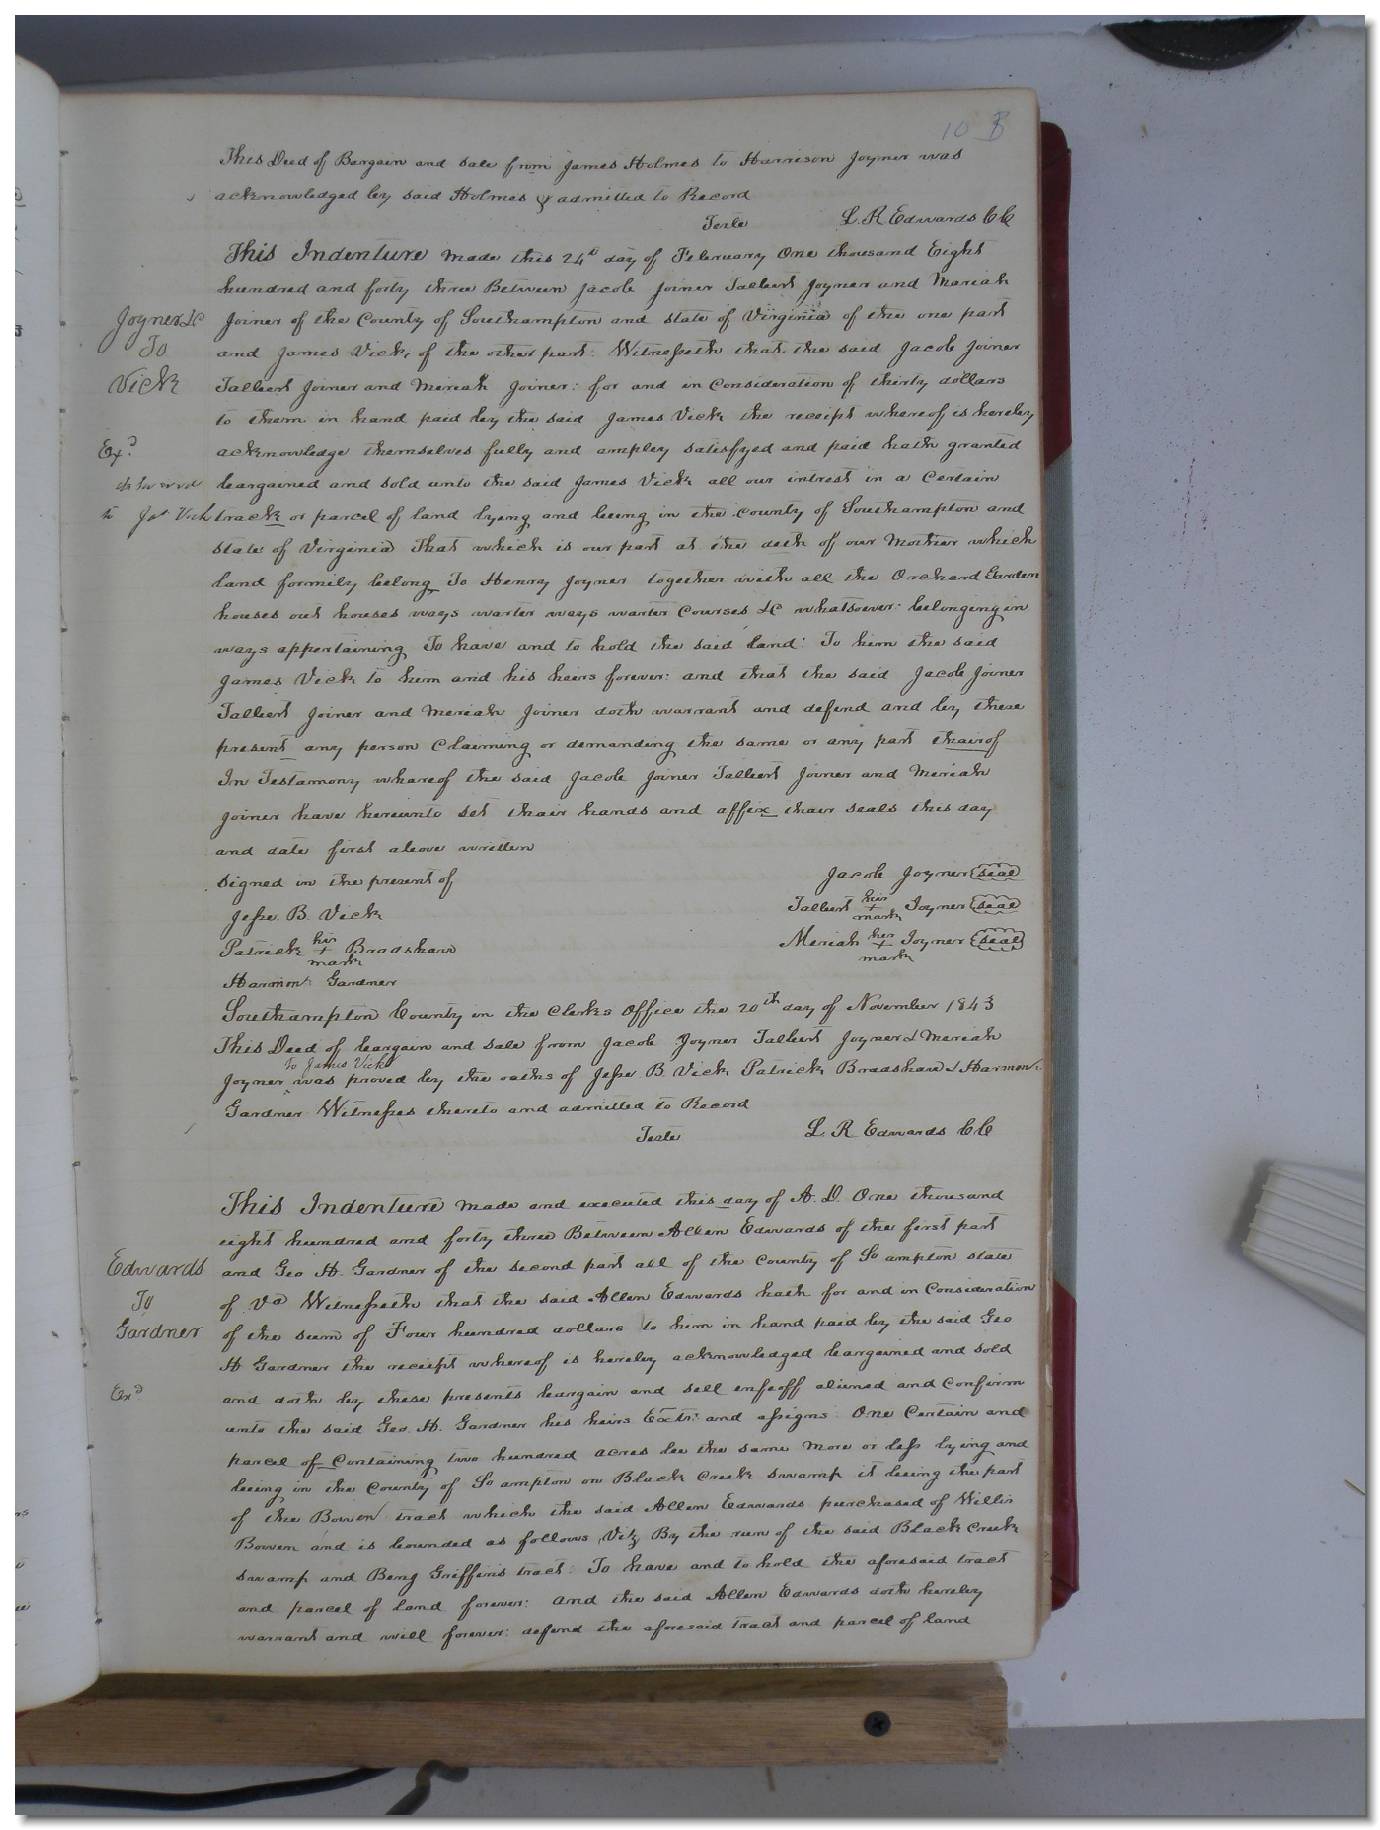 10 B
This Deed of Bargain and sale from James Holmes to Harrison Joyner was
acknowledged by said Holmes & admitted to Record
Teste L. R Edwards CC
This Indenture made this 24th day of February One thousand Eight
hundred and forty three Between Jacob Joiner Talbert Joyner and Meriah
Joyner &C Joiner of the County of Southampton and state of Virginia of the one part
To and James Vick, of the other part: Witnesseth that the said Jacob Joiner
Vick Talbert Joiner and Meriah Joiner: for and in Consideration of thirty dollars
to them in hand paid by the said James Vick the receipt whereof is hereby
Exd acknowledge themselves fully and ampley satisfyed and paid hath granted
delivered bargained and sold unto the said James Vick all our intrest in a Certain
to Jas Vick track or parcel of land lying and being in the county of Southampton and
state of Virginia That which is our part at the deth of our Mother which
land formily belong To Henry Joyner together with all the Orchard Garden
houses out houses ways warter ways warter Courses &C whatsoever: belonging in
ways appertaining To have and to hold the said land: To him the said
James Vick to him and his heirs forever: and that the said Jacob Joiner
Talbert Joiner and Meriah Joiner doth warrant and defend and by these
present any person Claiming or demanding the same or any part thairof
In Testamony whareof the said Jacob Joiner Talbert Joiner and Meriah
Joiner have hereunto set thair hands and affix thair seals this day
and date first above written
signed in the present of Jacob Joyner seal
Jesse B. Vick Talbert his + mark Joyner seal
Patrick his + mark Bradshaw Meriah her + mark Joyner seal
Harmon Gardner
Southampton County in the Clerks Office the 20th day of November 1843
This Deed of bargain and sale from Jacob Joyner Talbert Joyner & Meriah
to James Vick
Joyner was proved by the oaths of Jesse B. Vick Patrick Bradshaw & Harmon
Gardner Witnesses thereto and admitted to Record
Teste L. R Edwards CC
This Indenture made and executed this day of A. D. One thousand
eight hundred and forty three Between Allen Edwards of the first part
Edwards and Geo H. Gardner of the second part all of the County of So ampton state
To of Va Witnesseth that the said Allen Edwards hath for and in Consideration
Gardner of the sum of Four hundred dollars to him in hand paid by the said Geo
H Gardner the receipt whereof is hereby acknowledged bargained and sold
Exd and doth by these presents bargain and sell enfeoff aliened and Confirm
unto the said Geo. H. Gardner his heirs Extrs and assigns One Certain and
parcel of Containing two hundred acres be the same more or less lying and
being in the County of So ampton on Black Creek swamp it being the part
of the Bowen tract which the said Allen Edwards purchased of Willis
Bowen and is bounded as follows Viz By the run of the said Black Creek
swamp and Benj Griffins tract: To have and to hold the aforesaid tract
and parcel of land forever: and the said Allen Edwards doth hereby
warrant and will forever: defend the aforesaid tract and parcel of land